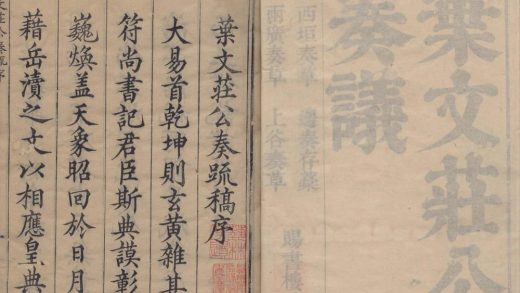 葉文莊公
奏議
西垣奏草 邊奏存稿
兩廣奏草 上谷奏草
賜書樓
葉文莊公奏疏稿序
大易首乾坤則玄黃雜其
符尚書記君臣斯典謨彰
巍煥盖天象昭回於日月
藉岳瀆之文以相應皇典